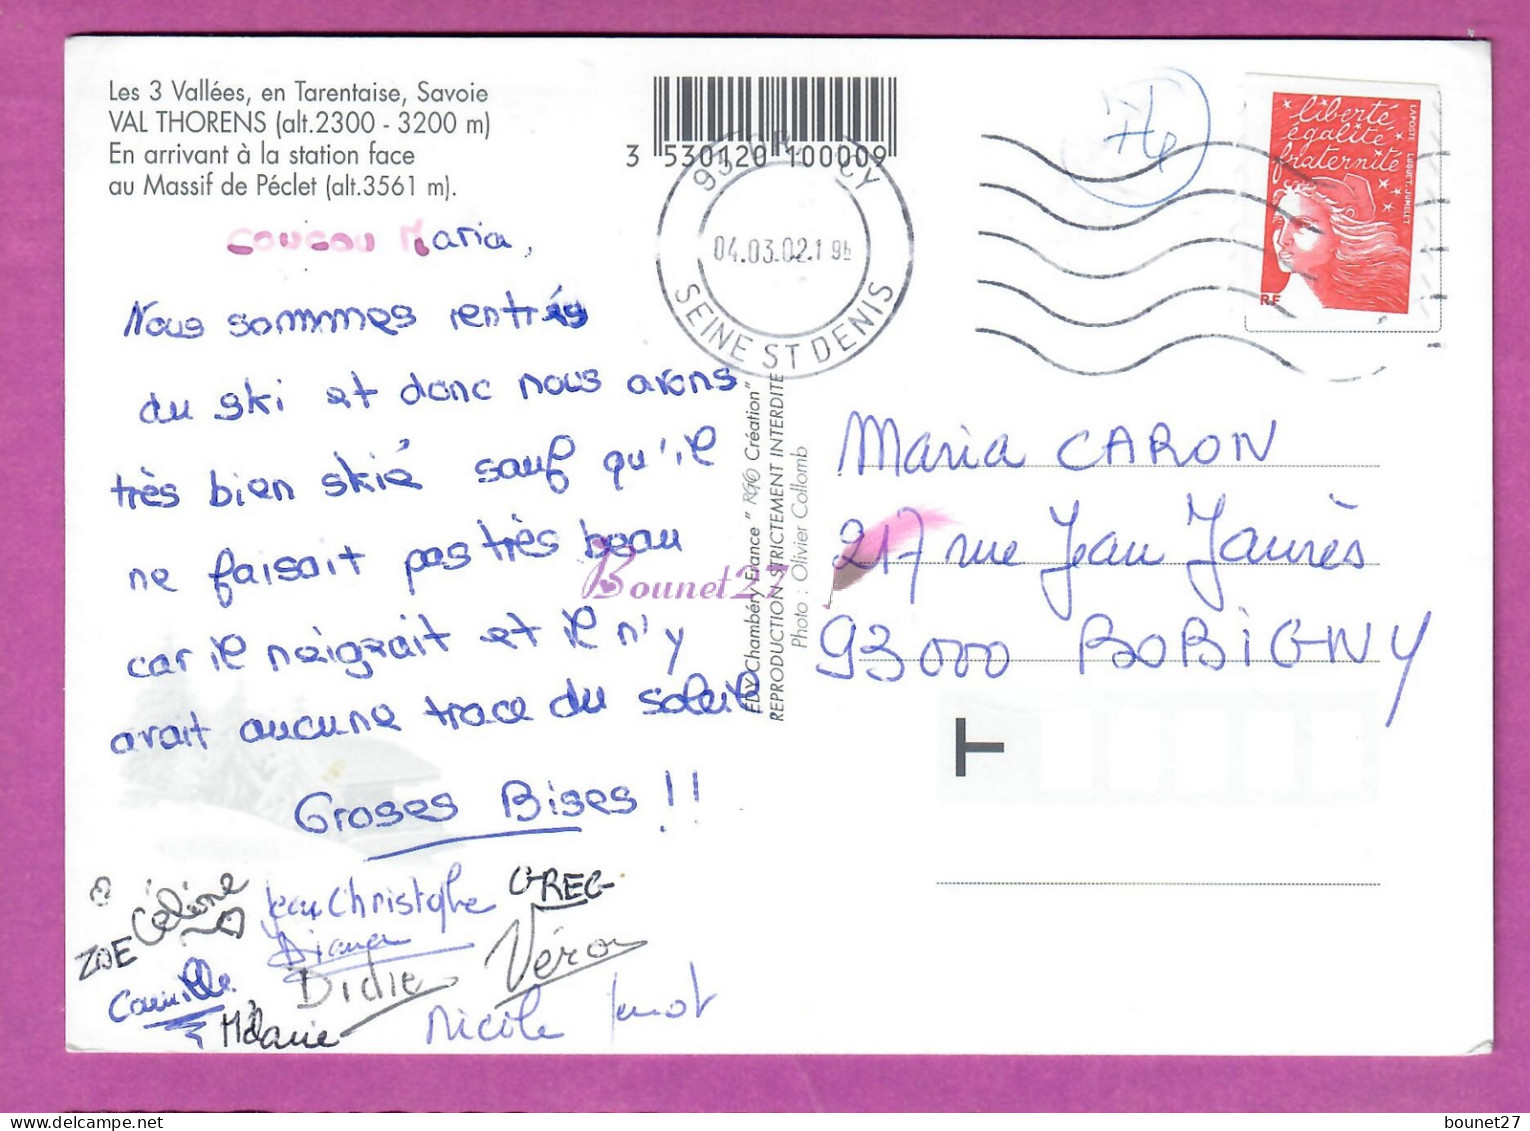 Les 3 Vallées, en Tarentaise, Savoie
VAL THORENS (alt.2300 - 3200 m)
En arrivant à la station face
au Massif de Péclet (alt.3561 m).
3 530120 100009
04.03.02.19h
SEINE ST DENIS
liberté
égalité
fraternité
LA POSTE LUQUET-JUMELET
RF
Coucou Maria,
Nous sommes rentrés
du ski et donc nous avons
très bien skié sauf qu'il
ne faisait pas très beau
car il neigeait et il n'y
avait aucune trace du soleil
Groses Bises !!
Céline
Jean Christophe
GREG
ZOE
Diana
Véro
Camille
Didie
Mélanie
Nicole
EDY Chambéry France " RGG Création"
REPRODUCTION STRICTEMENT INTERDITE
Photo : Olivier Collomb
Maria CARON
217 rue Jean Jaurès
93000 BOBIGNY
T
Bounet27
bounet27